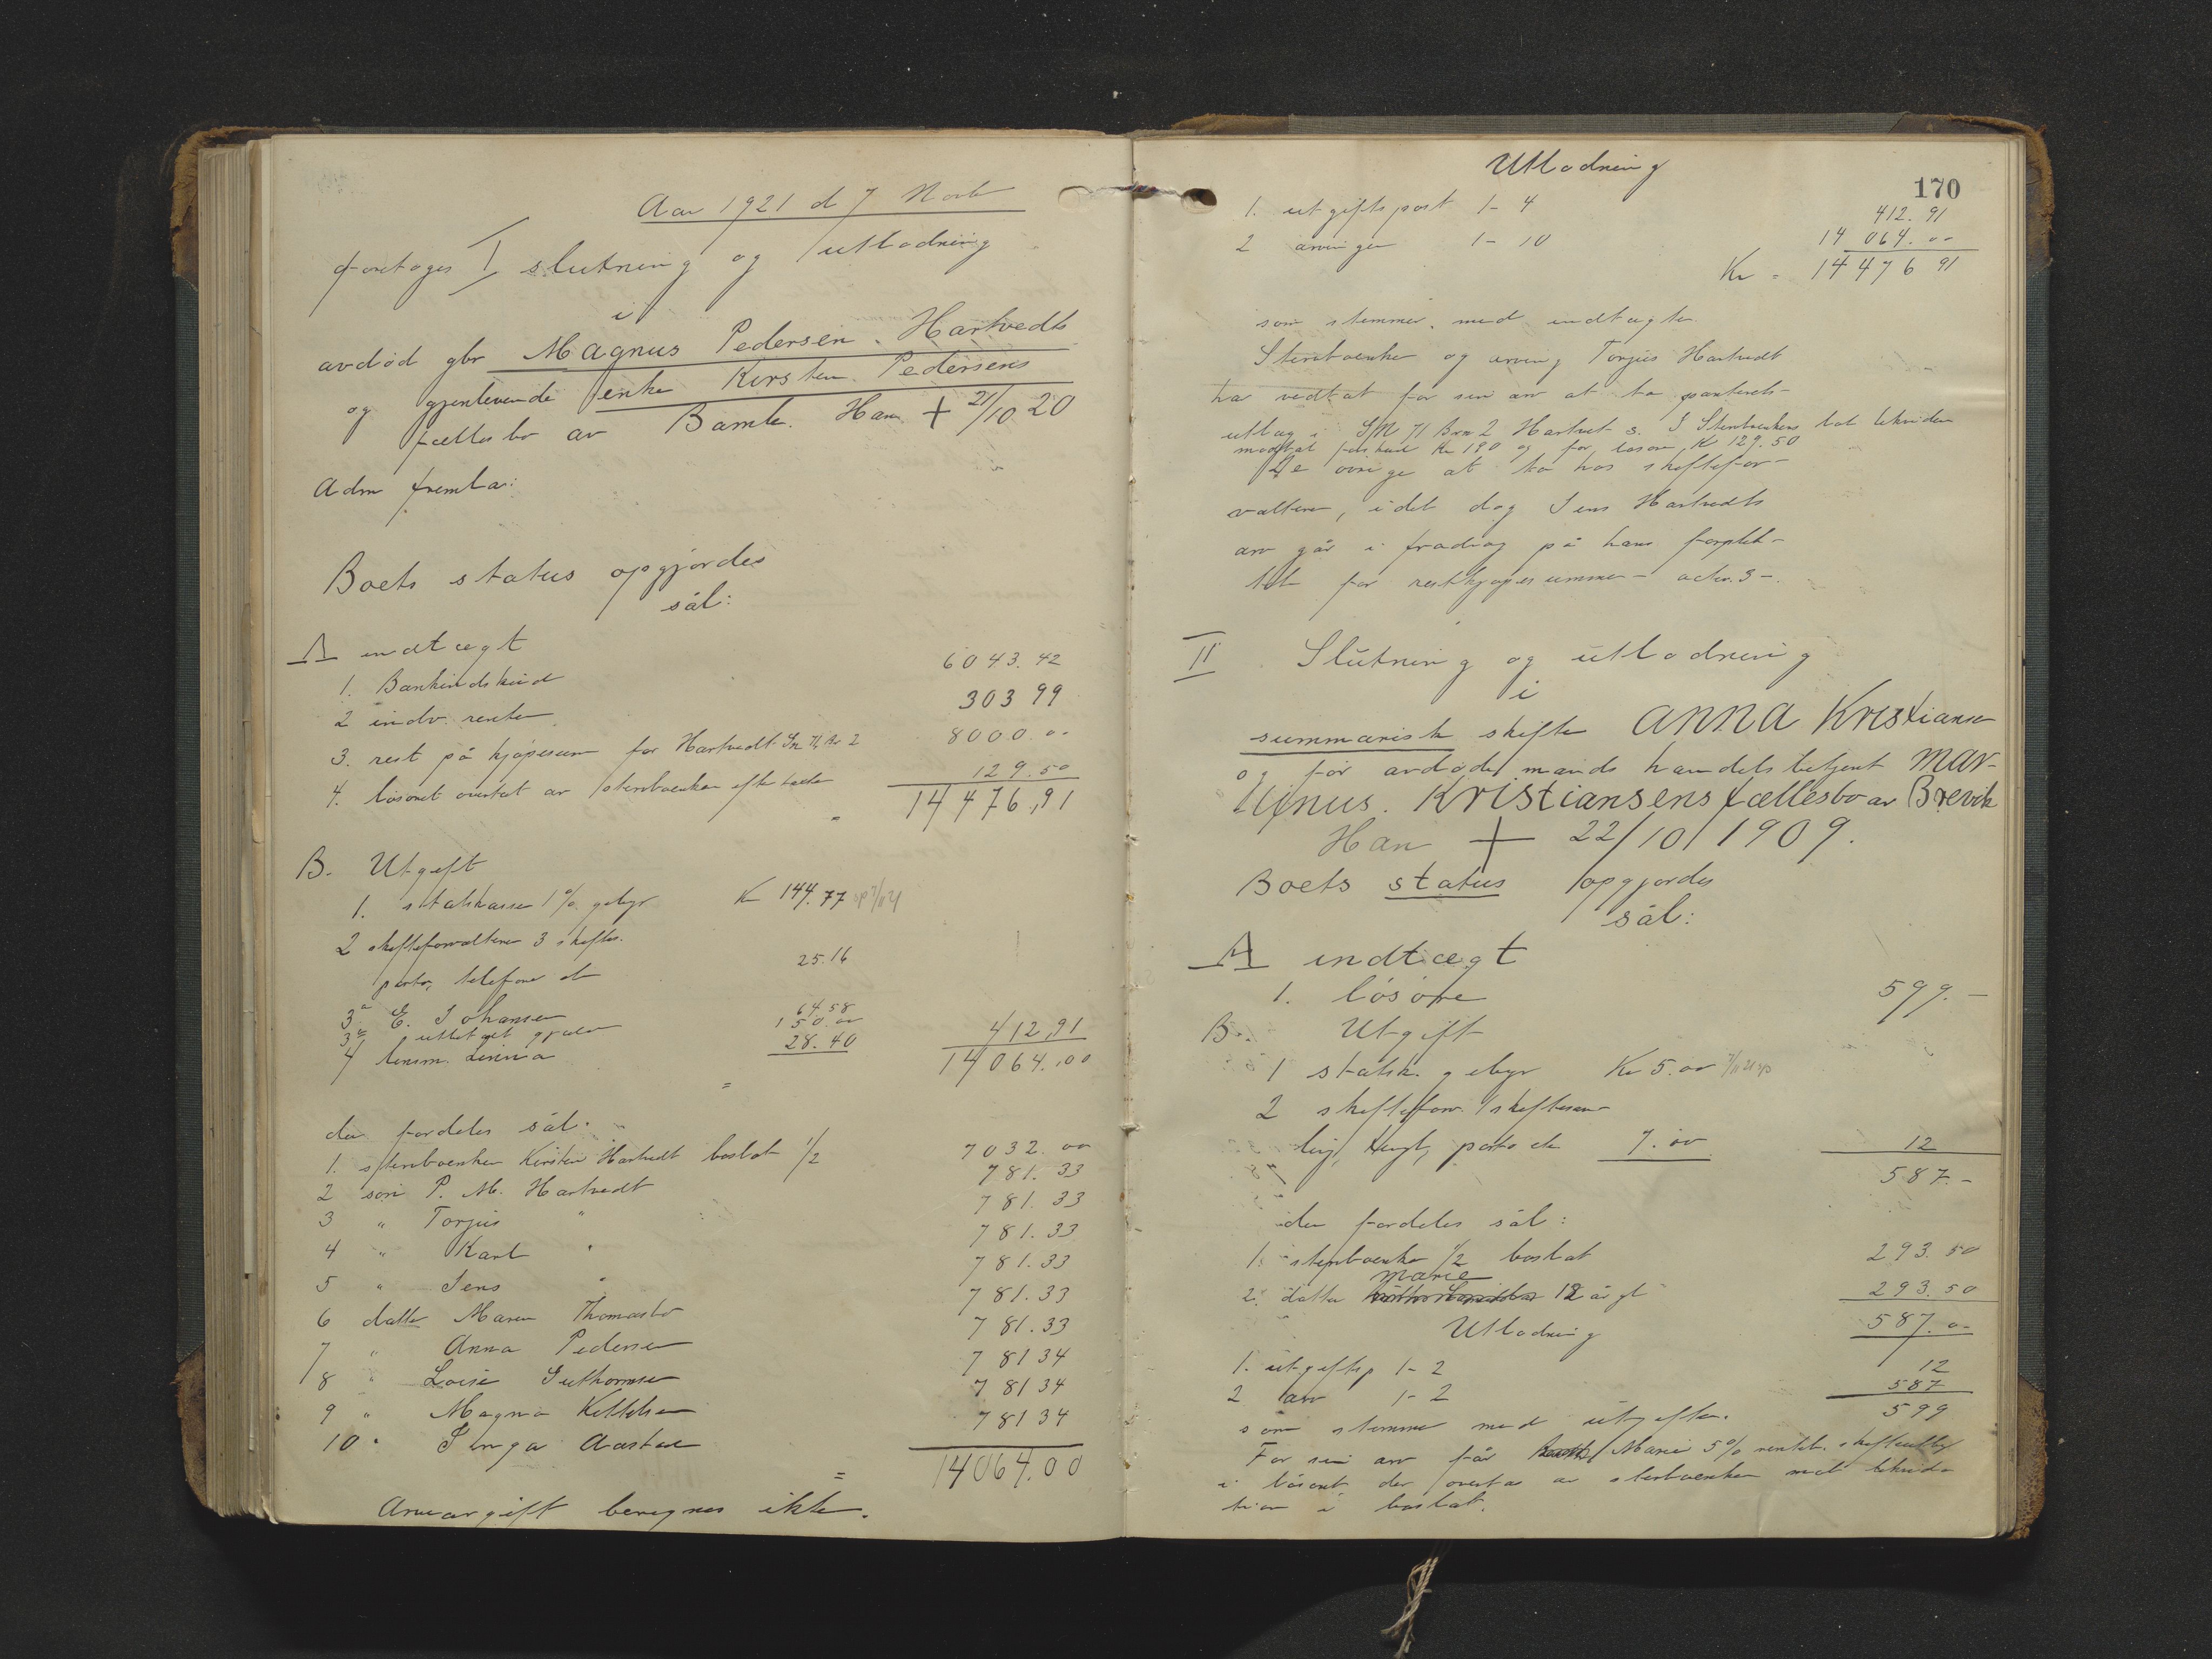 Aar 1921 d 7 Novbr
foretoges I slutning og utlodning
i
avdød gbr Magnus Pedersen Hartvedts
og gjenlevende enke Kirsten Pedersens
fællesbo av Bamle. Han + 21/10 20
Adm fremla:
Boets status opgjordes
sål:
A indtægt
1. Bankindskud 6043.42
2 indv. renter 303 99
3. rest på kjøpesum for Hartvedt Gn 71 Br 2 8000.00
4. løsøret overtat av stervboenken efter takst 129.50
= 14476,91
B. Utgift
1. statskassen 1% gebyr Kr 144.77
2 skifteforvalteren 3 skiftes.
porto, telefoner etc 25.16
3a E. Johansen 64.58
3b utlotet gjæld 150.00
4 lensm. Linna 28.40 412,91
= 14064.00
der fordeles sål.
1. stervboenken Kirsten Hartvedt boslot 1/2 7032.00
2 søn P. M. Hartvedt 781.33
3 " Torjus " 781.33
4 " Karl " 781.33
5 " Jens " 781.33
6 datter Maren Thomasbo 781.33
7 " Anna Pedersen 781.33
8 " Loise Guthormsen 781 34
9 " Magna Kittilsen 781 34
10 " Inga Aastad 781 34
= 14064.00
Arveavgift beregnes ikke.
170
Utlodning
1. utgiftspost 1-4 412.91
2 arvinger 1-10 14 064.00
Kr = 14476 91
som stemmer med indtægten
Stervboenken og arving Torjus Hartvedt
har vedtat for sin arv at ta panterets-
utlæg i Gn 71 Brn 2 Hartvet s. I Stervboenkens lot likvideres
mottat forskud Kr 190 og for løsøre Kr 129.50
De øvrige at ta hos skiftefor-
valteren, idet dog Jens Hartvedts
arv går i fradrag på hans forplik-
telse for restkjøpesummen - adv. 3 -.
II Slutning og utlodning
i
summarisk skifte Anna Kristiansen
og før avdøde mands handelsbetjent Mar-
tinus Kristiansens fællesbo av Brevik
Han + 22/10 1909.
Boets status opgjordes
sål:
A indtægt
1. løsøre 599.-
B. Utgift
1 statsk. gebyr Kr 5.00
2 skifteforv. 1 skiftesam-
ling, porto etc 7.00 12
587.-
der fordeles sål:
1. stervboenke 1/2 boslot 293.50
2. datter Marie 12 år gl 293.50
587.00
Utlodning
1. utgiftsp 1-2 12
2 arv 1-2 587
som stemmer med utgiften. 599
For sin arv får Marie 5% rentb. skifteutlæg
i løsøret der overtas av stervboenken mot likvida-
tion i boslot.